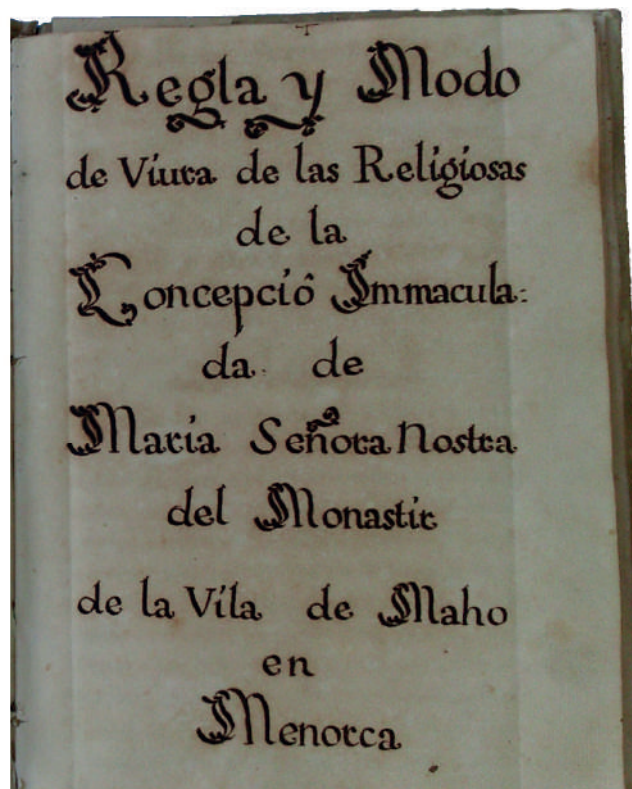 Regla y Modo
de Viura de las Religiosas
de la
Concepciô Immacula:
da de
Maria Señora Nostra
del Monastir
de la Vila de Maho
en
Menorca